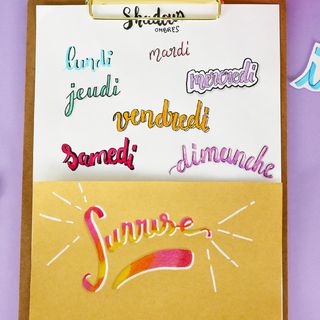 Shadow
OMBRES
lundi mardi
jeudi mercredi
vendredi
samedi dimanche
Sunrise